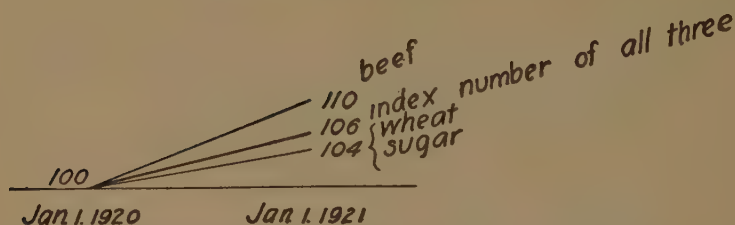 beef
110
index number of all three
106 { wheat
104 { sugar
100
Jan 1. 1920 Jan 1. 1921